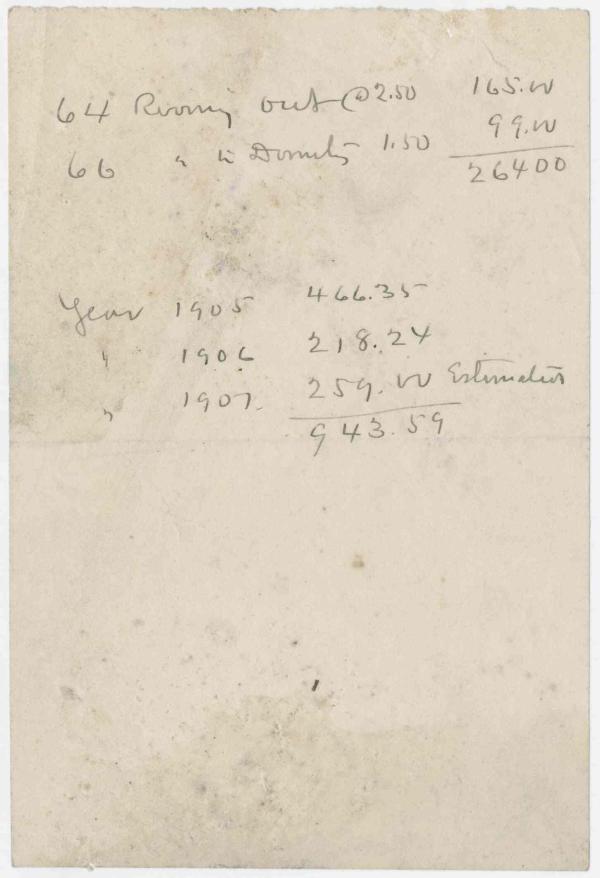 64 Rooming out @ 2.50 165.00
66 " in Dormity 1.50 99.00
26400
Year 1905 466.35
" 1906 218.24
" 1907. 259.00 Estimation
943.59